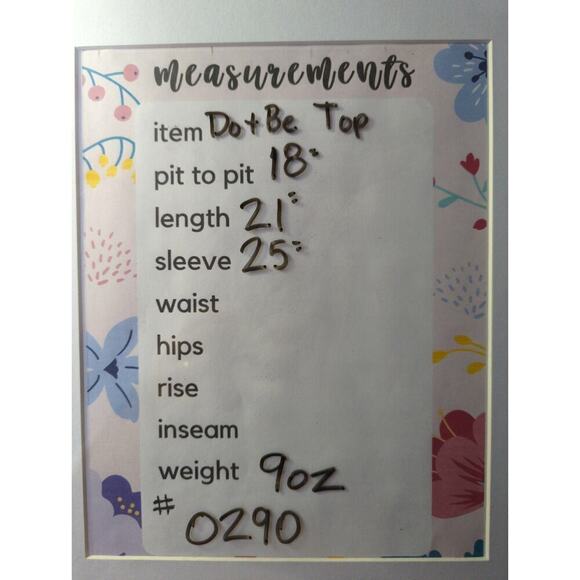 measurements
item Do+Be Top
pit to pit 18"
length 21"
sleeve 25"
waist
hips
rise
inseam
weight 9oz
# 0290